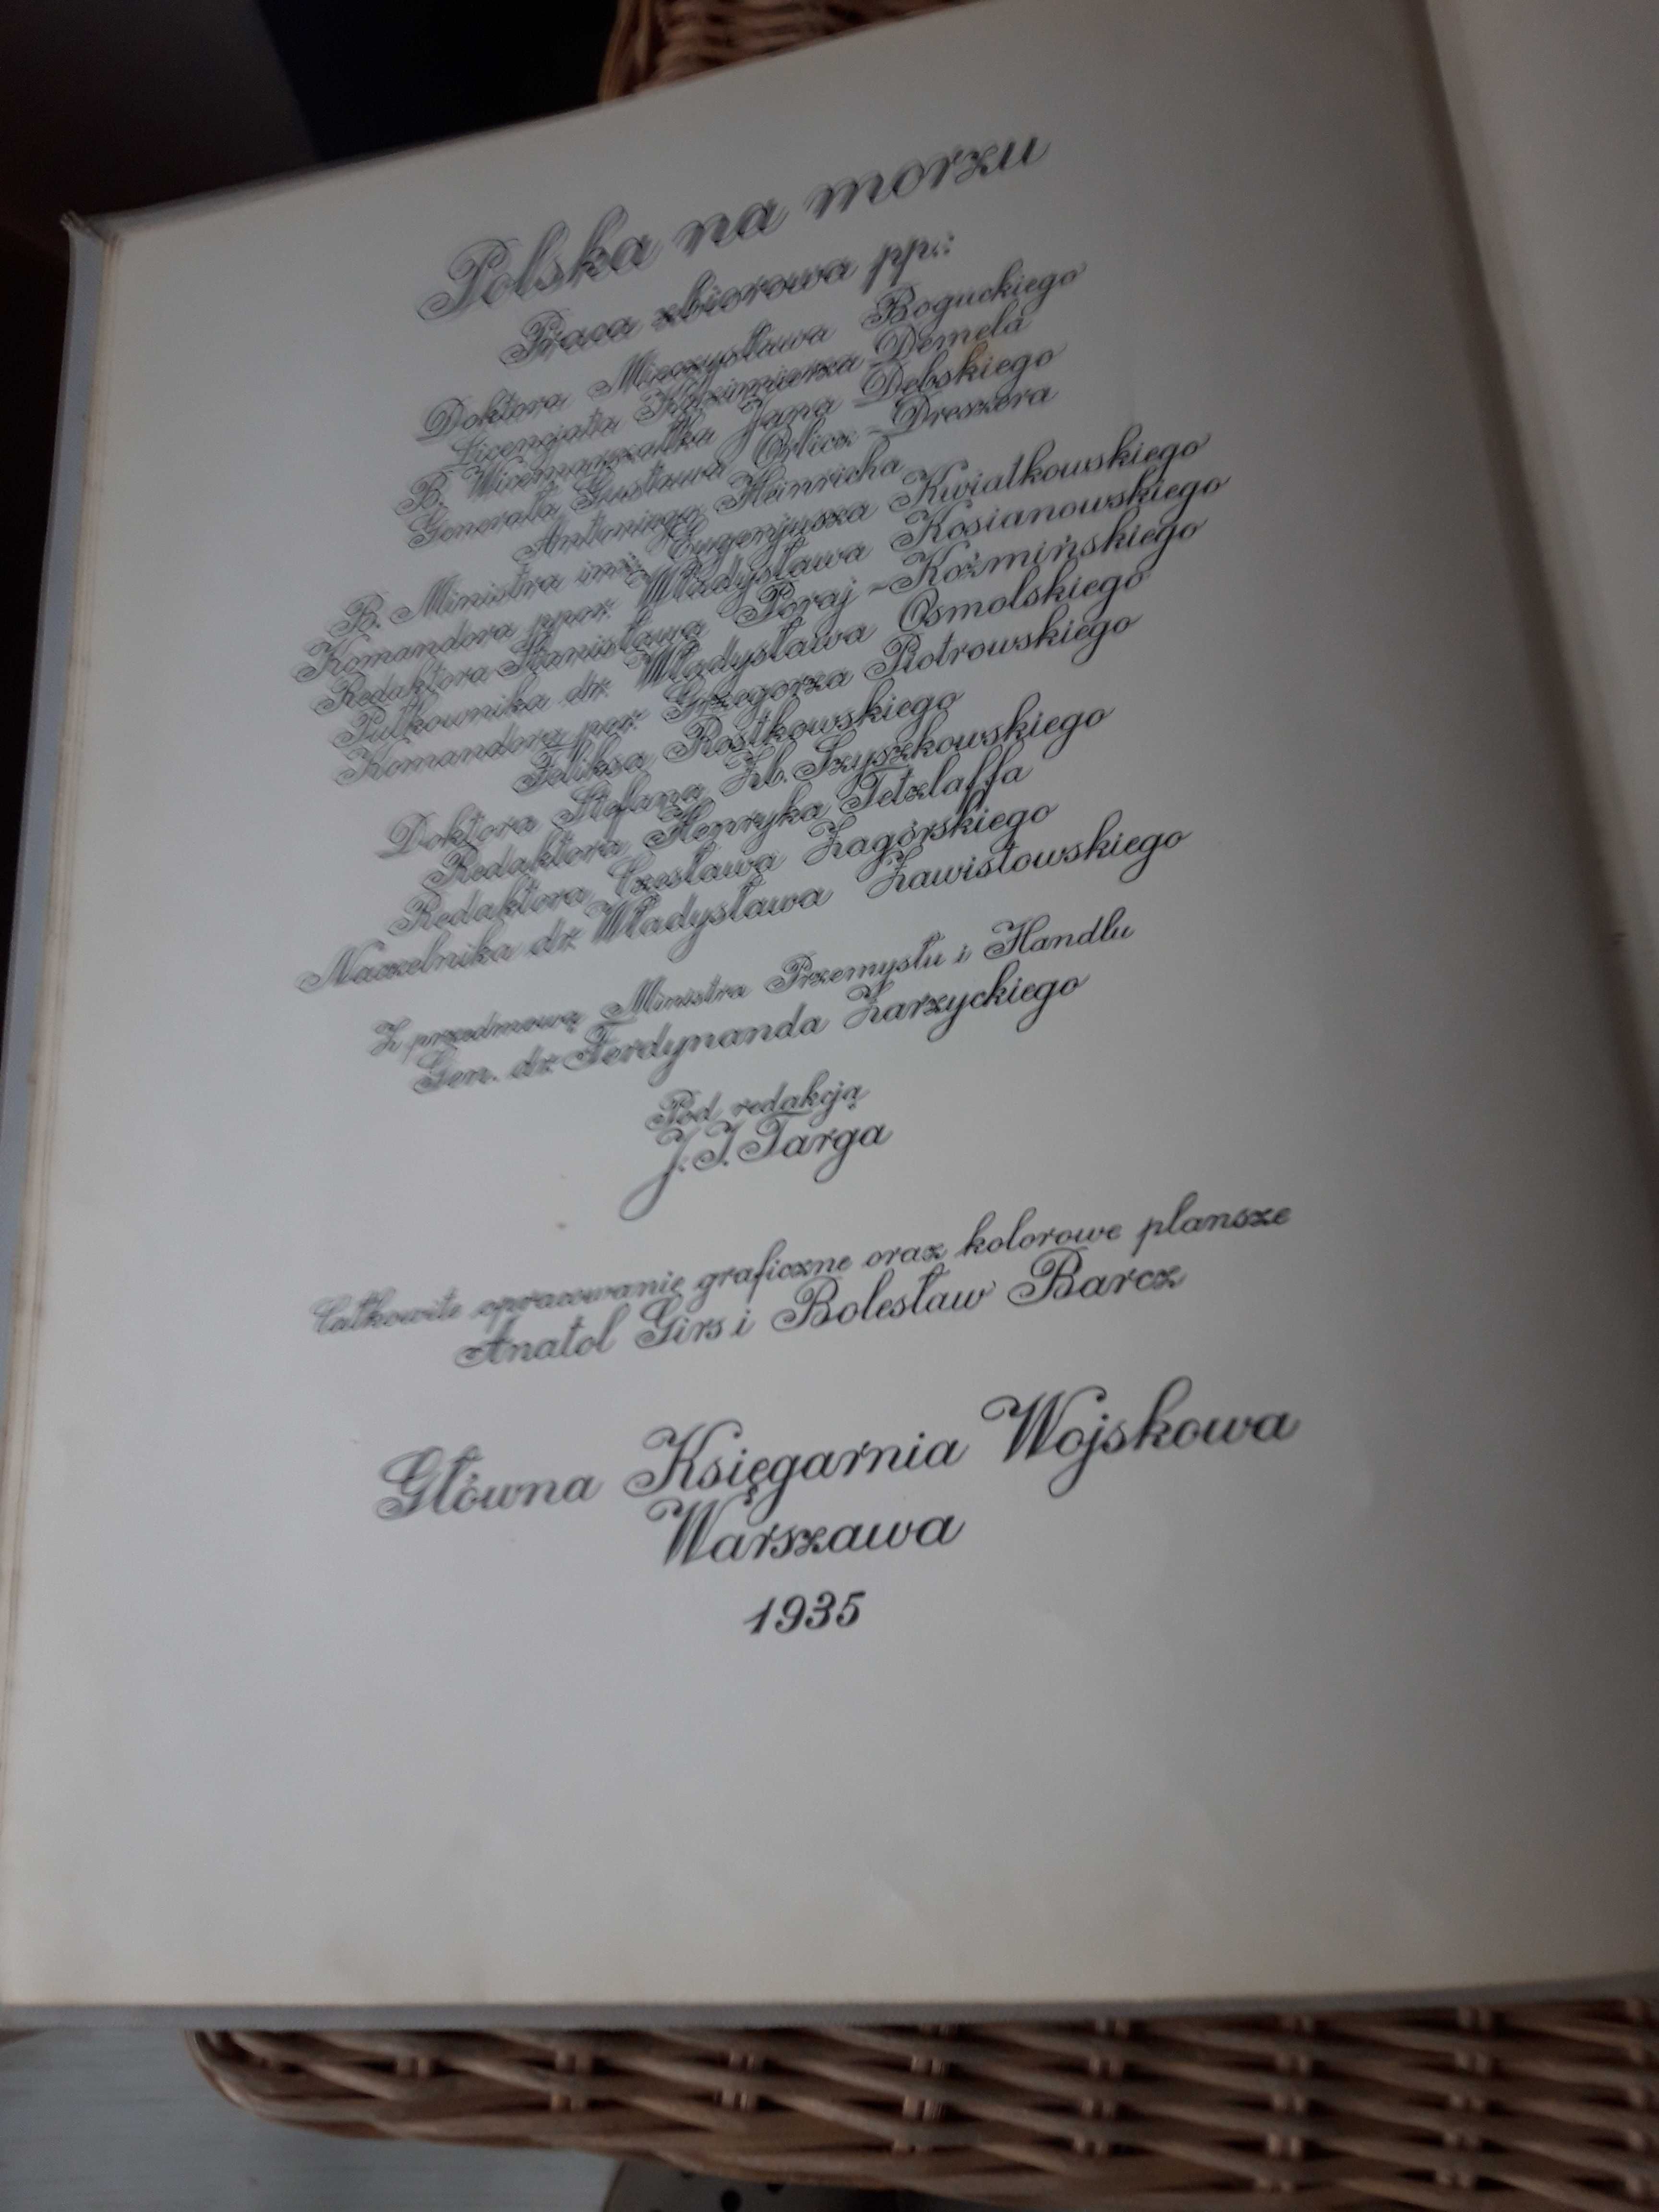 Polska na morzu
Praca zbiorowa pp.:
Doktora Mieczysława Boguckiego
Licencjata Kazimierza Demela
B. Wicemarszałka Jana Dębskiego
Generała Gustawa Orlicz-Dreszera
Antoniego Heinricha
B. Ministra inż. Eugenjusza Kwiatkowskiego
Komandora ppor. Władysława Kosianowskiego
Redaktora Stanisława Poraj-Koźmińskiego
Pułkownika dr. Władysława Osmolskiego
Komandora por. Grzegorza Piotrowskiego
Feliksa Rostkowskiego
Doktora Stefana Zb. Szyszkowskiego
Redaktora Henryka Tetzlaffa
Redaktora Czesława Zagórskiego
Naczelnika dr. Władysława Zawistowskiego
Z przedmową Ministra Przemysłu i Handlu
Gen. dr. Ferdynanda Zarzyckiego
Pod redakcją
J. I. Targa
Całkowite opracowanie graficzne oraz kolorowe plansze
Anatol Girs i Bolesław Barcz
Główna Księgarnia Wojskowa
Warszawa
1935